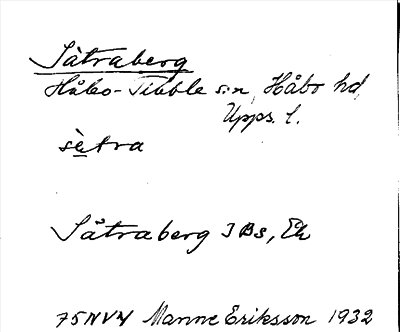 Såtraberg
Håbo-Tibble sn, Håbo hd,
Upps. l.
sètra
Såtraberg JBs, Ek
75NV4 Manne Eriksson 1932